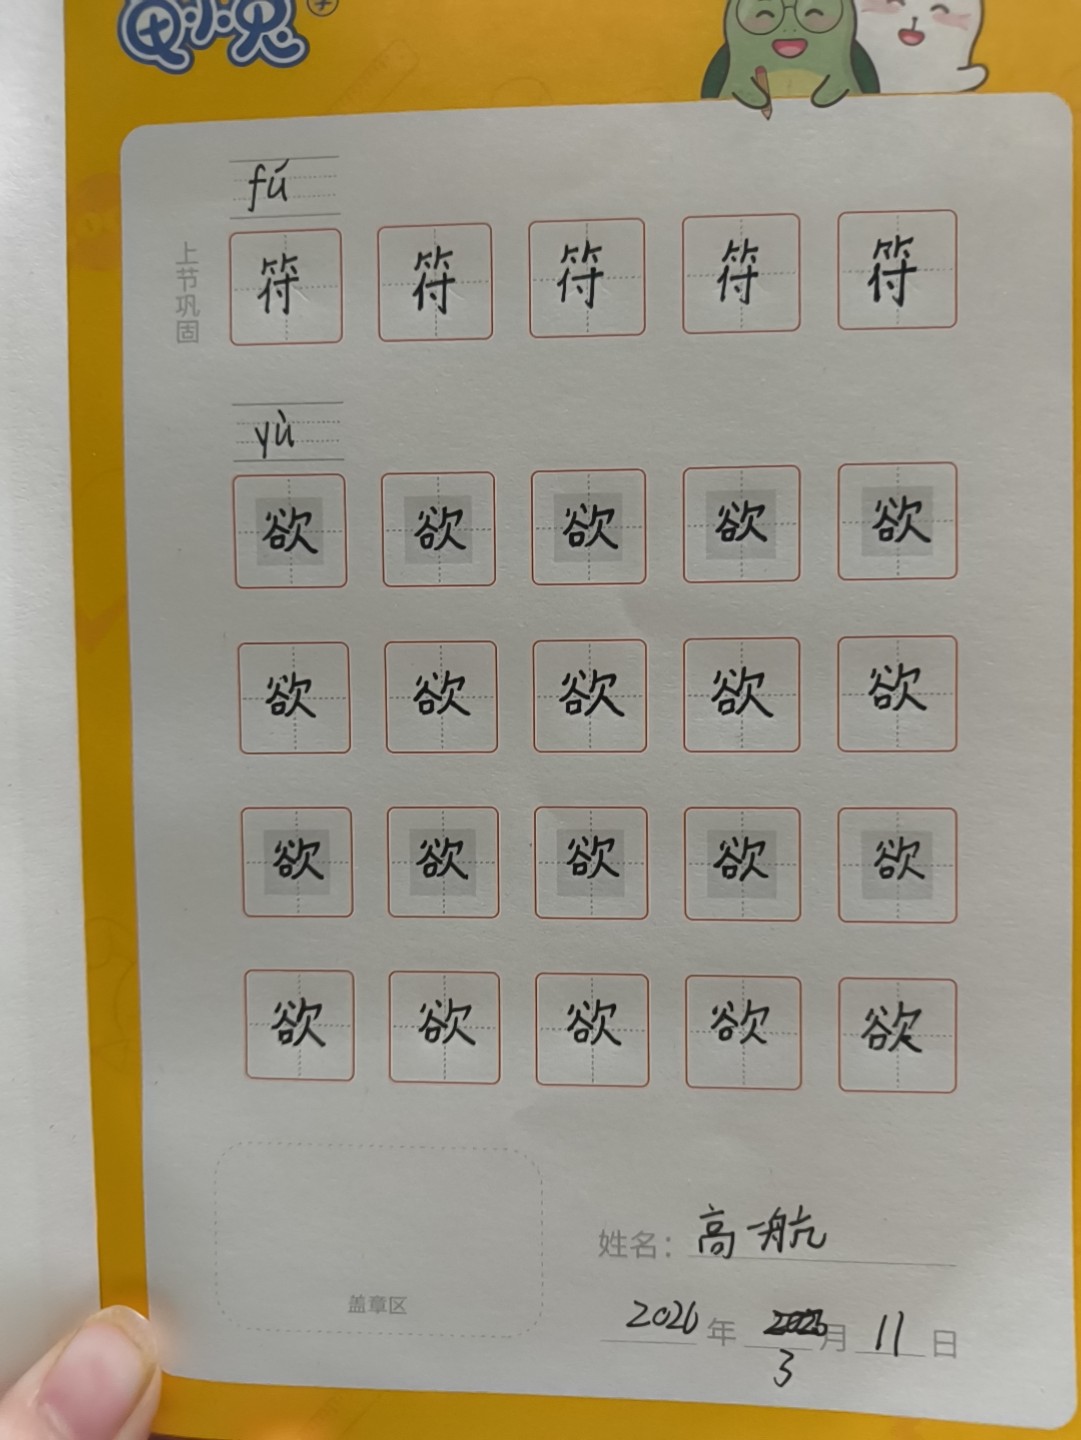 fú
上节巩固
符 符 符 符 符
yù
欲 欲 欲 欲 欲
欲 欲 欲 欲 欲
欲 欲 欲 欲 欲
欲 欲 欲 欲 欲
姓名：高一航
盖章区
2026年 3月 11日